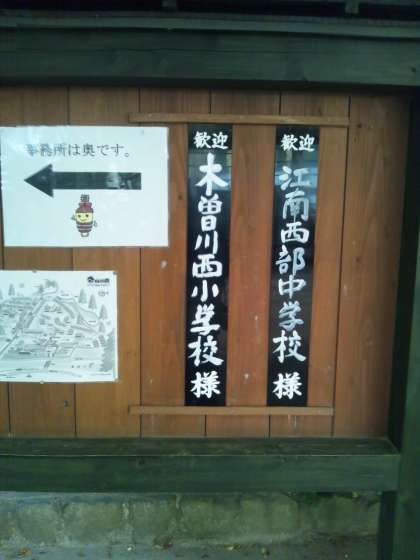 事務所は奥です。
歓迎
江南西部中学校 様
歓迎
木曽川西小学校 様